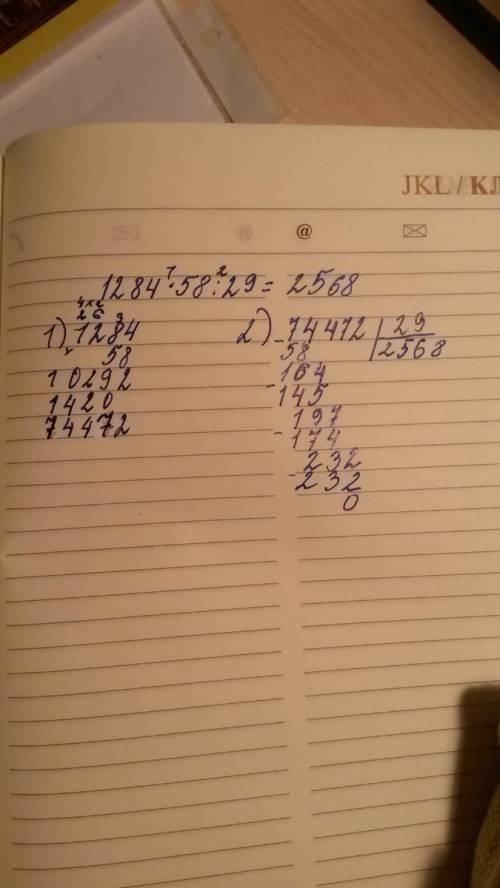 JKL / КЛ
@ @
1284 · 58 : 29 = 2568
1) 1284
× 58
10292
1420
74472
2) 74472 | 29
- 58 | 2568
164
- 145
197
- 174
232
- 232
0